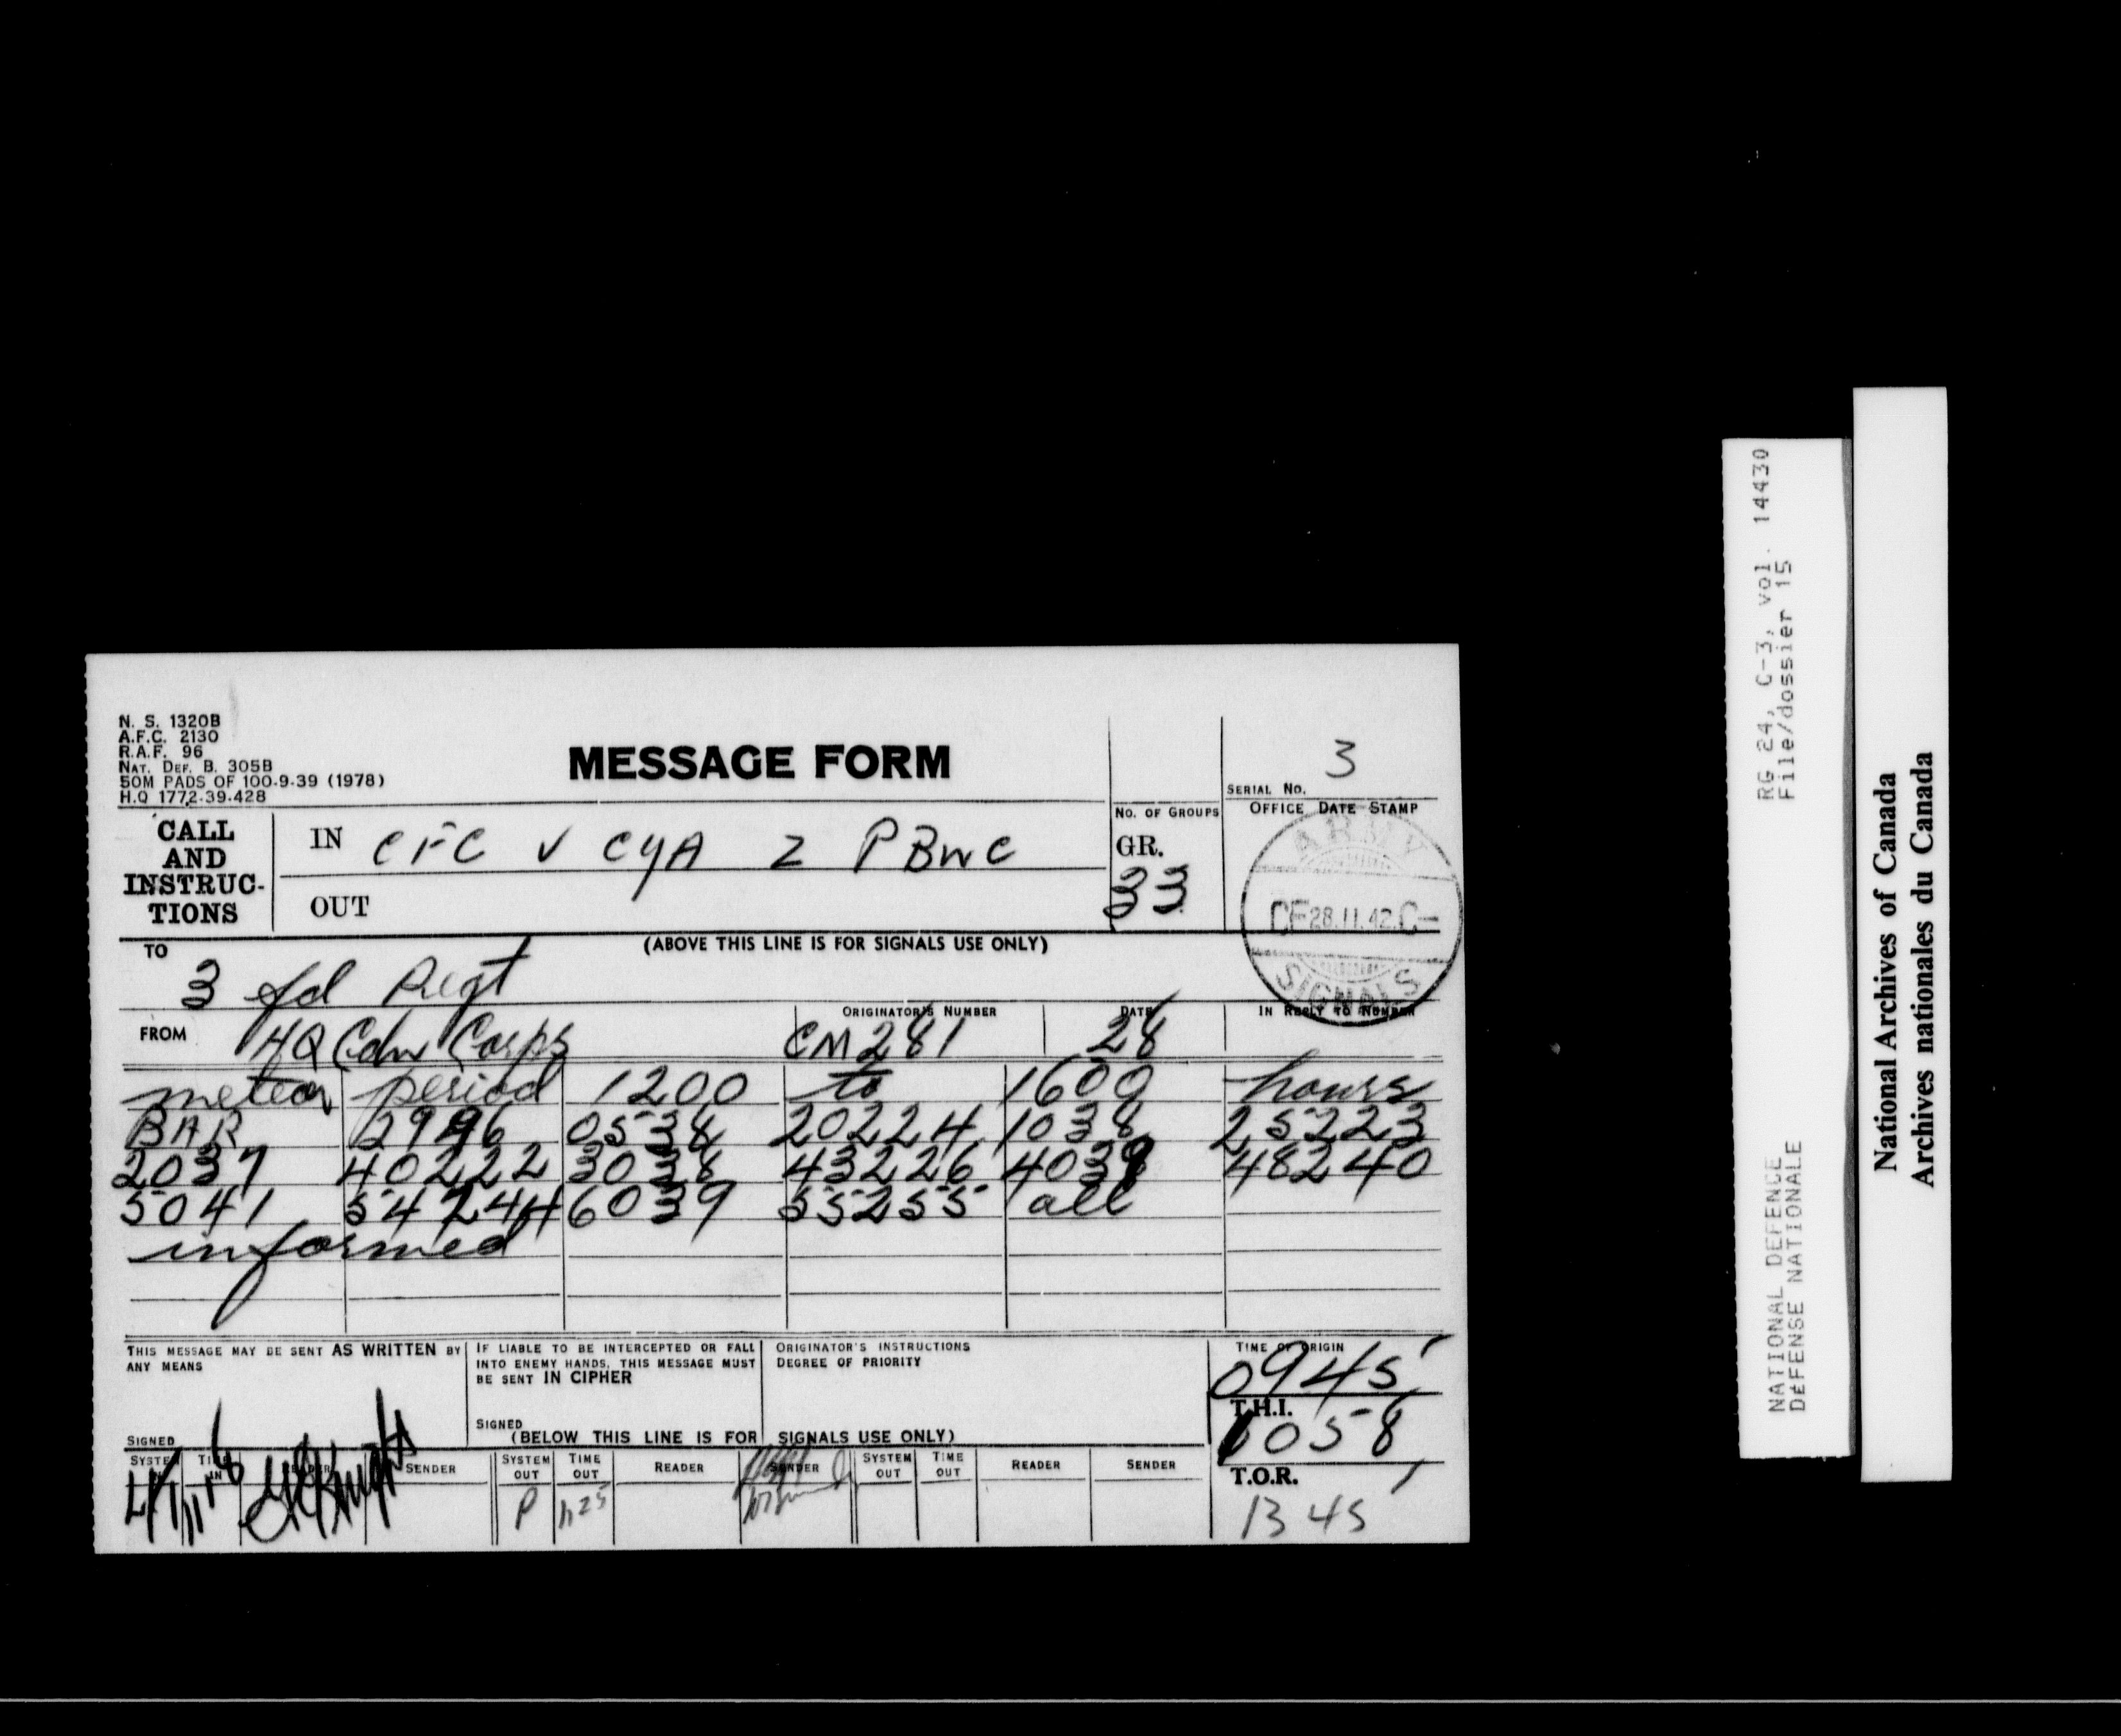 N. S. 1320B
A.F.C. 2130
R.A.F. 96
NAT. DEF. B. 305B
50M PADS OF 100-9-39 (1978)
H.Q 1772-39-428
MESSAGE FORM
3
SERIAL NO.
CALL AND INSTRUC-TIONS
IN CFC V CYA Z PBWC
OUT
NO. OF GROUPS
GR.
33
OFFICE DATE STAMP
ARMY
CF 28.11.42.C-
SIGNALS
(ABOVE THIS LINE IS FOR SIGNALS USE ONLY)
TO
3 fd Regt
FROM HQ Cdn Corps
ORIGINATOR'S NUMBER
CM 281
DATE
28
IN REPLY TO NUMBER
meteor period 1200 to 1600 hours
BAR 2996 0538 20224 1038 25223
2037 40222 3038 43226 4039 48240
5041 54244 6039 55255 all
informed
THIS MESSAGE MAY BE SENT AS WRITTEN BY
ANY MEANS
SIGNED
IF LIABLE TO BE INTERCEPTED OR FALL
INTO ENEMY HANDS, THIS MESSAGE MUST
BE SENT IN CIPHER
SIGNED
ORIGINATOR'S INSTRUCTIONS
DEGREE OF PRIORITY
TIME OF ORIGIN
0945
T.H.I.
1058
T.O.R.
1345
(BELOW THIS LINE IS FOR SIGNALS USE ONLY)
SYSTEM IN TIME IN READER SENDER SYSTEM OUT TIME OUT READER SENDER SYSTEM OUT TIME OUT READER SENDER
P 1125
RG 24, C-3, vol. 14430
File/dossier 15
NATIONAL DEFENCE
DÉFENSE NATIONALE
National Archives of Canada
Archives nationales du Canada